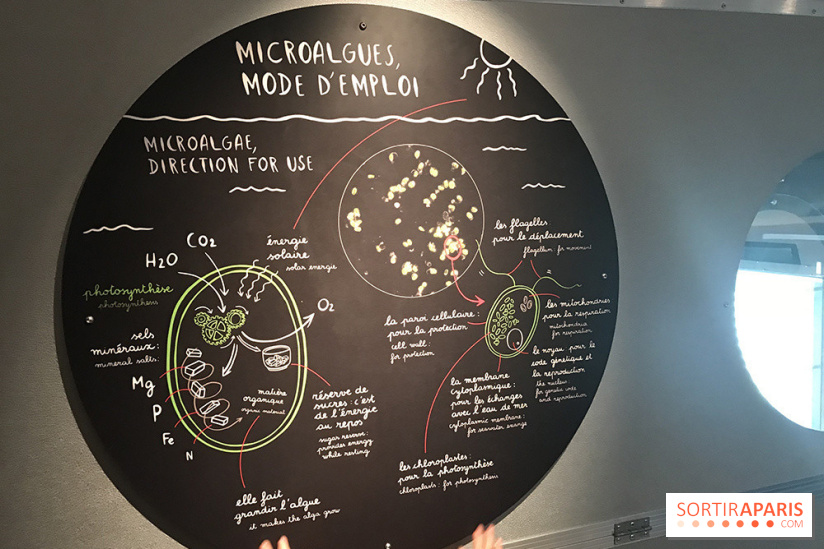 MICROALGUES,
MODE D'EMPLOI
MICROALGAE,
DIRECTION FOR USE
CO2
H2O
énergie
solaire
solar energie
photosynthèse
photosynthesis
O2
sels
minéraux:
mineral salts:
Mg
P
Fe
N
matière
organique
organic material
réserve de
sucres: c'est
de l'énergie
au repos
sugar reserve:
provides energy
while resting
elle fait
grandir l'algue
it makes the alga grow
les flagelles
pour le déplacement
flagellum: for movement
la paroi cellulaire:
pour la protection
cell wall:
for protection
les mitochondries
pour la respiration
mitochondria
for respiration
le noyau: pour le
code génétique et
la reproduction
the nucleus:
for genetic code
and reproduction
la membrane
cytoplasmique:
pour les échanges
avec l'eau de mer
cytoplasmic membrane:
for seawater exchange
les chloroplastes:
pour la photosynthèse
chloroplasts: for photosynthesis
SORTIRAPARIS
.COM